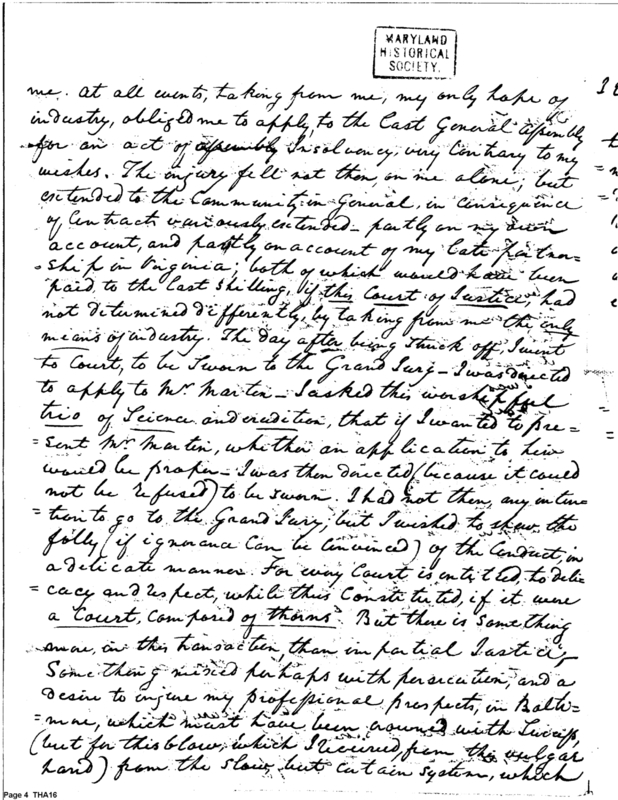 MARYLAND
HISTORICAL
SOCIETY.
me. At all events, taking from me, my only hope of
industry, obliged me to apply, to the last General Assembly
for an act of assembly Insolvency, very contrary to my
wishes. The injury fell not then, on me alone, but
extended to the Community in General, in consequence
of Contracts variously extended – partly on my own
account, and partly on account of my late partner=
=ship in Virginia; both of which would have been
paid to the last shilling, if this Court of Justice, had
not determined differently, by taking from me the only
means of industry. The day after being struck off, I went
to Court, to be Sworn to the Grand Jury – I was directed
to apply to Mr Martin – I asked this worshipful
trio of Science and erudition, that if I wanted to pre=
=sent Mr Martin, whether an application to him
would be proper – I was then directed (because it could
not be refused) to be sworn. I had not then, any inten=
=tion to go to the Grand Jury, but I wished to shew the
folly (if ignorance can be convinced) of the Conduct, in
a delicate manner. For every Court is entitled, to deli=
=cacy and respect, while thus Constituted, if it were
a Court, composed of thorns. But there is something
more, in this transaction, than impartial Justice,
Something mixed perhaps with persecution, and a
desire to injure my professional prospects, in Balti=
=more, which must have been crowned with Success,
(but for this blow, which I received from the vulgar
hand) from the slow, but certain system, which
Page 4 THA16